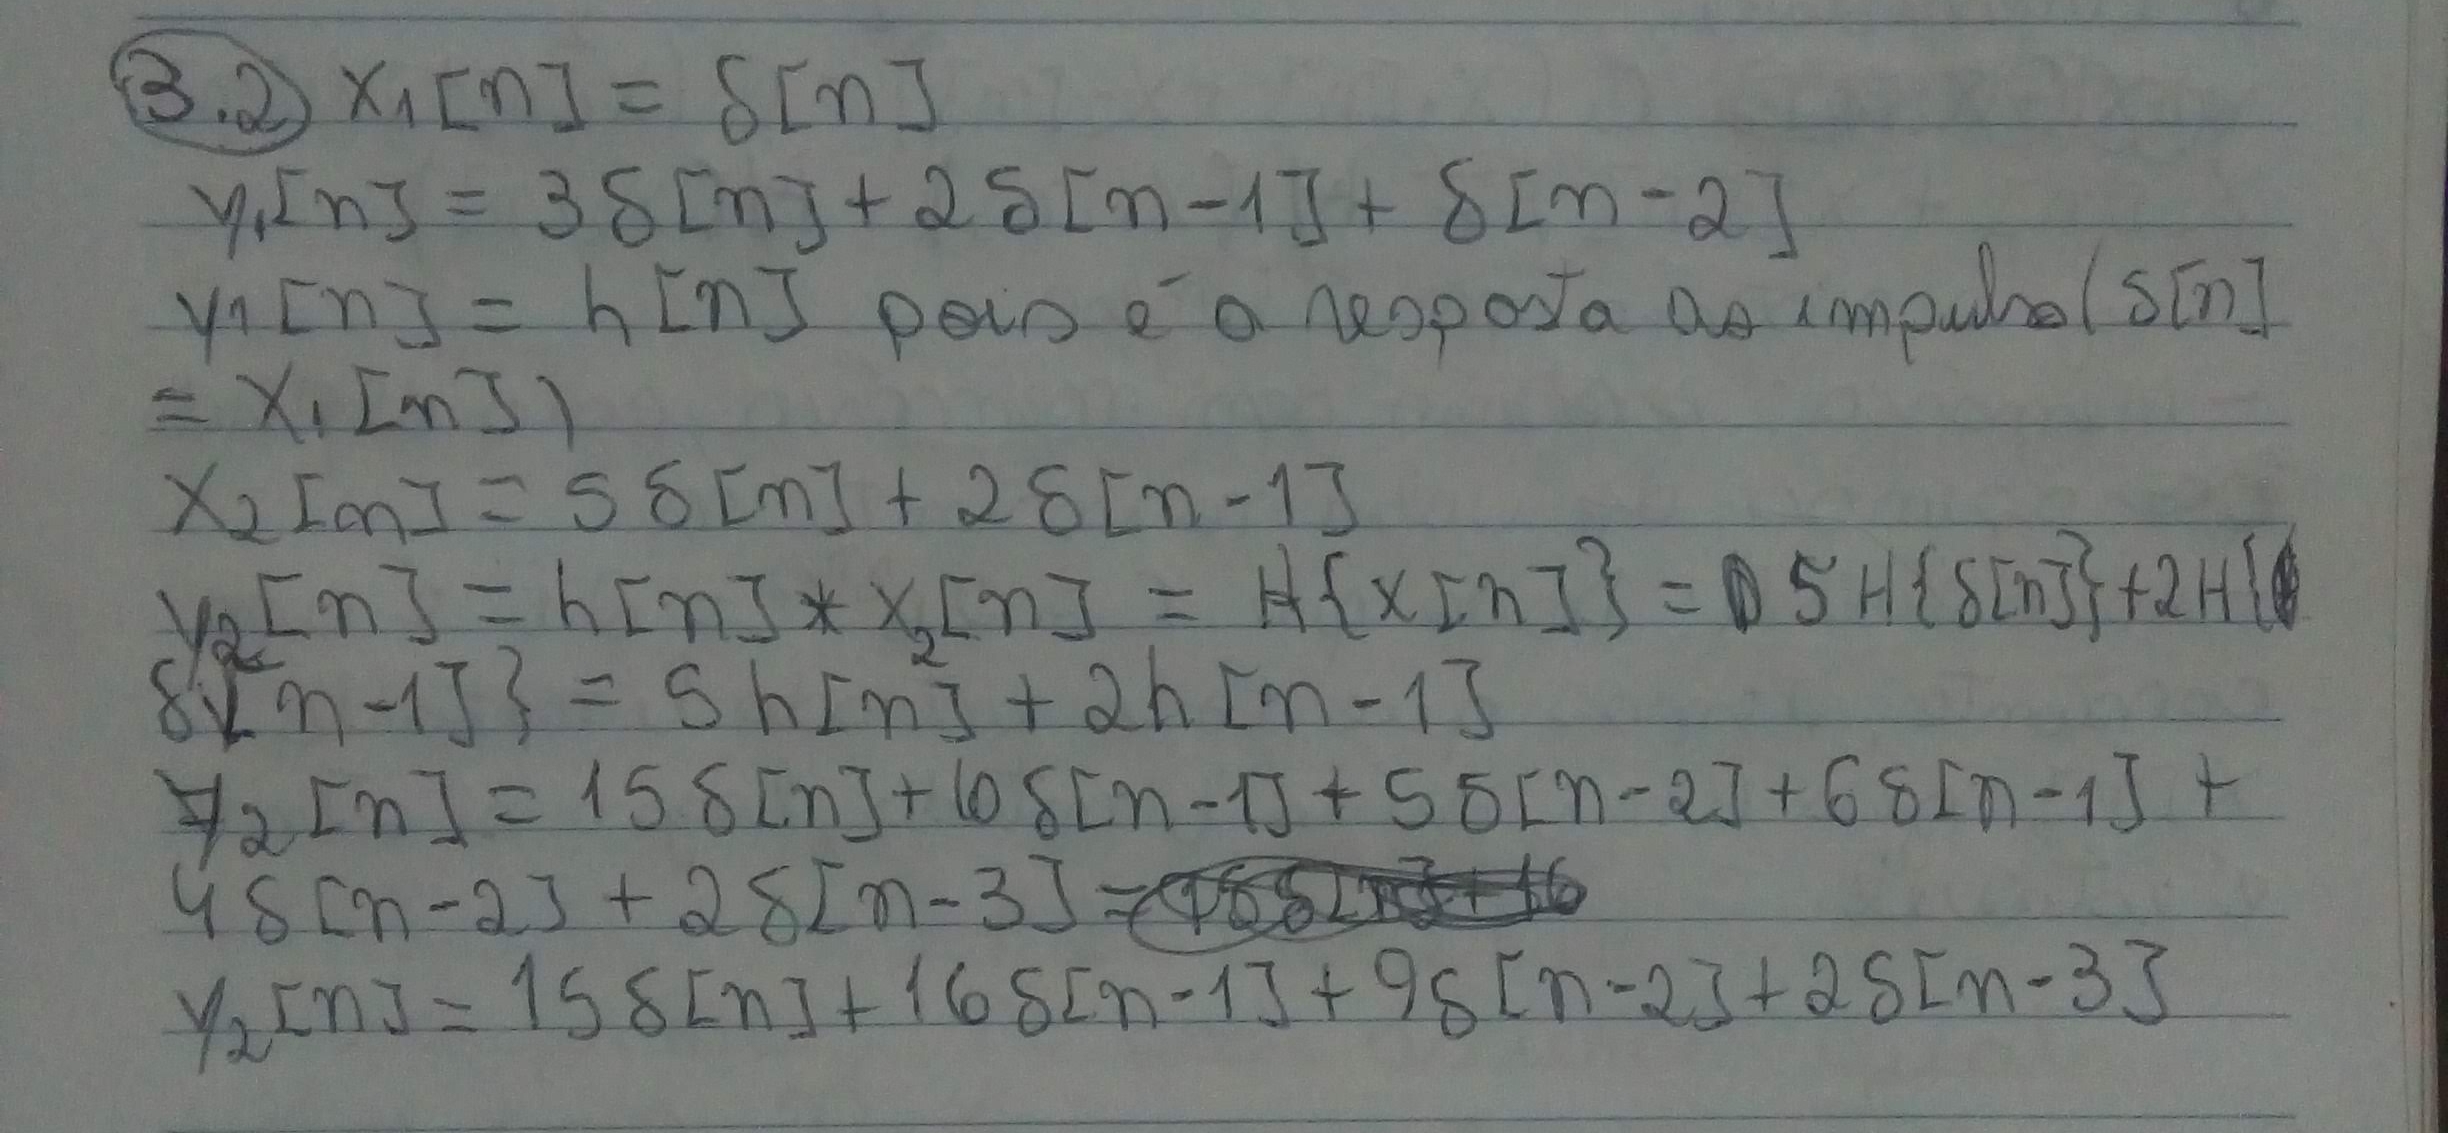 3.2) x₁[n] = δ[n]
y₁[n] = 3δ[n] + 2δ[n-1] + δ[n-2]
y1[n] = h[n] pois é a resposta ao impulso (δ[n]
= x₁[n])
x₂[n] = 5δ[n] + 2δ[n-1]
y₂[n] = h[n] * x₂[n] = H{x[n]} = 5H{δ[n]} + 2H{
δ[n-1]} = 5h[n] + 2h[n-1]
y₂[n] = 15δ[n] + 10δ[n-1] + 5δ[n-2] + 6δ[n-1] +
4δ[n-2] + 2δ[n-3] =
y₂[n] = 15δ[n] + 16δ[n-1] + 9δ[n-2] + 2δ[n-3]